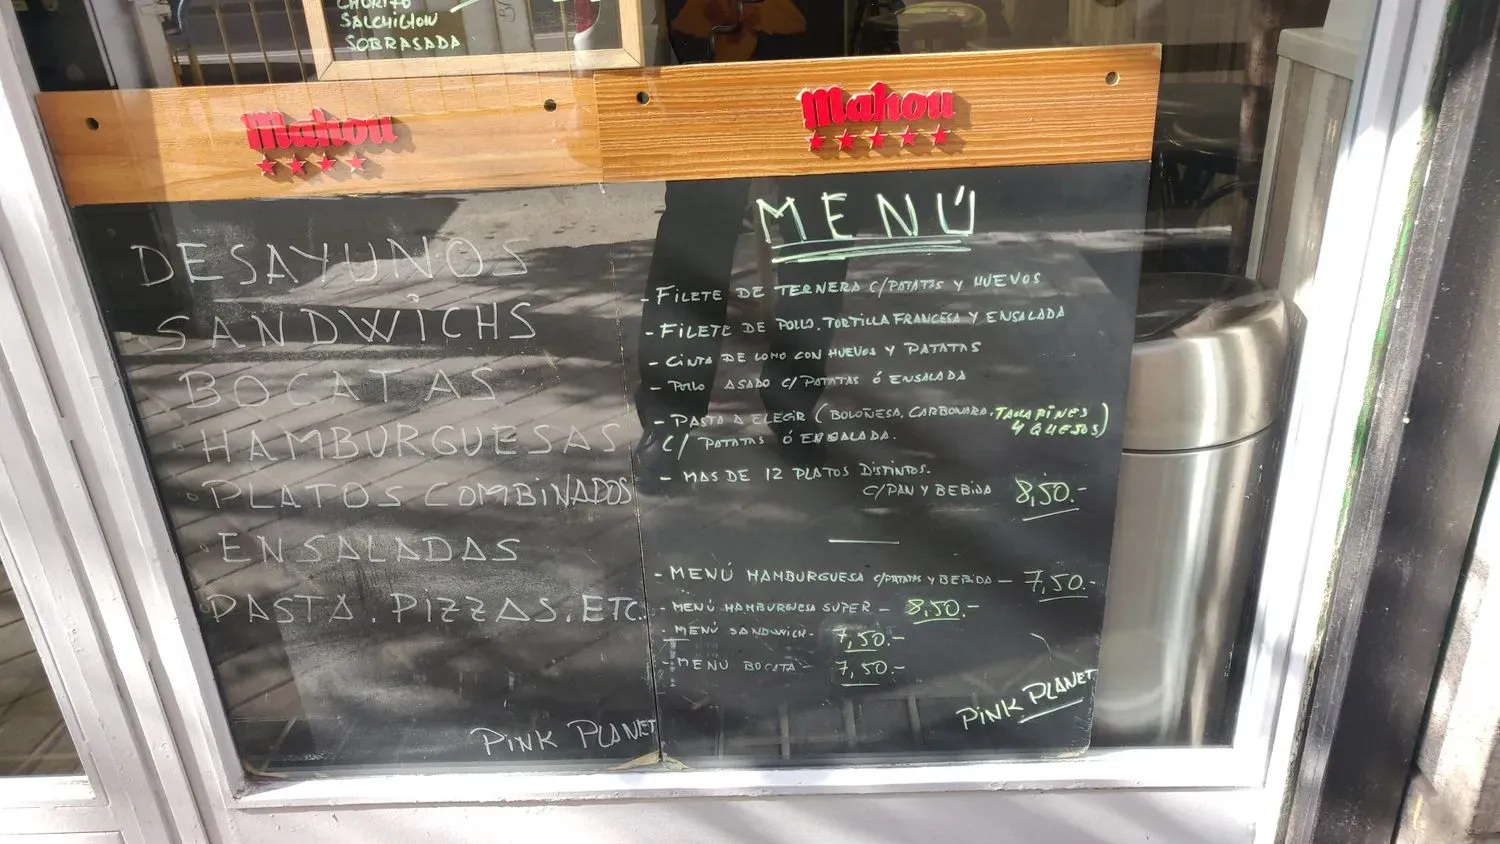 CHORIZO
SALCHICHON
SOBRASADA
Mahou
Mahou
DESAYUNOS
SANDWICHS
BOCATAS
HAMBURGUESAS
PLATOS COMBINADOS
ENSALADAS
PASTA. PIZZAS. ETC.
PINK PLANET
MENÚ
- FILETE DE TERNERA C/PATATAS Y HUEVOS
- FILETE DE POLLO. TORTILLA FRANCESA Y ENSALADA
- CINTA DE LOMO CON HUEVOS Y PATATAS
- POLLO ASADO C/PATATAS Ó ENSALADA
- PASTA A ELEGIR (BOLOÑESA, CARBONARA,
Y QUESOS)
C/ PATATAS Ó ENSALADA.
- MAS DE 12 PLATOS DISTINTOS.
C/PAN Y BEBIDA 8,50.-
- MENÚ HAMBURGUESA C/PATATAS Y BEBIDA - 7,50.-
- MENÚ HAMBURGUESA SUPER - 8,50.-
- MENÚ SANDWICH- 7,50.-
- MENÚ BOCATA - 7,50.-
PINK PLANET